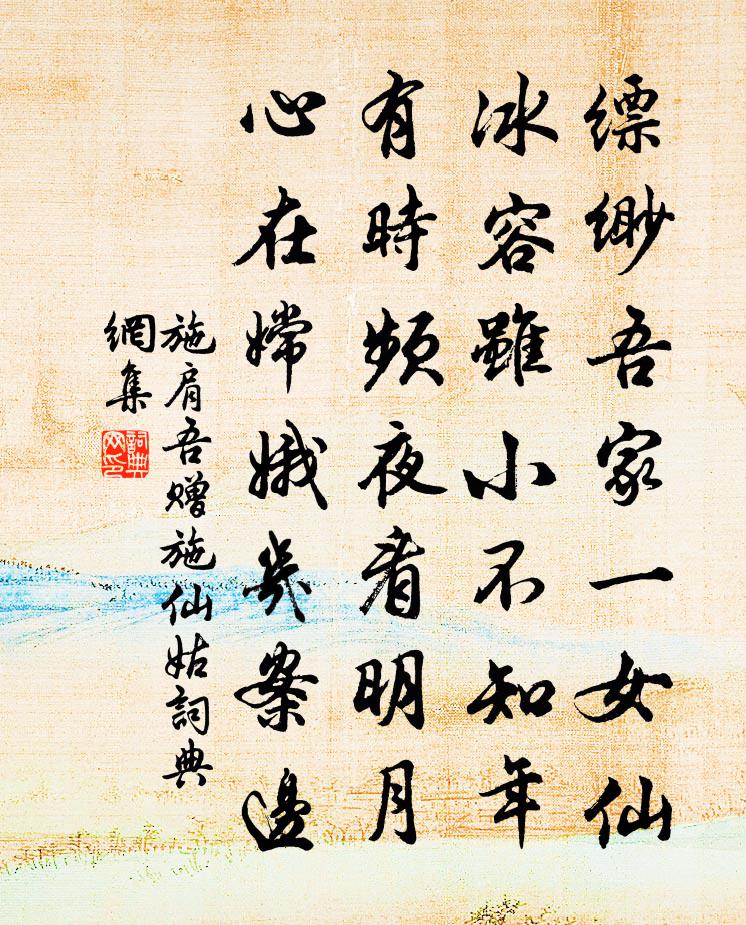 缥缈吾家一女仙
冰容雖小不知年
有時頻夜看明月
心在嫦娥幾案邊
施肩吾赠施仙姑詞典
網集
詞典
网印